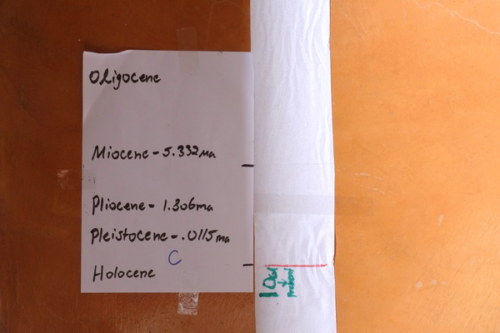 Oligocene
Miocene - 5.332ma
Pliocene - 1.306ma
Pleistocene - .0115ma
C
Holocene
present